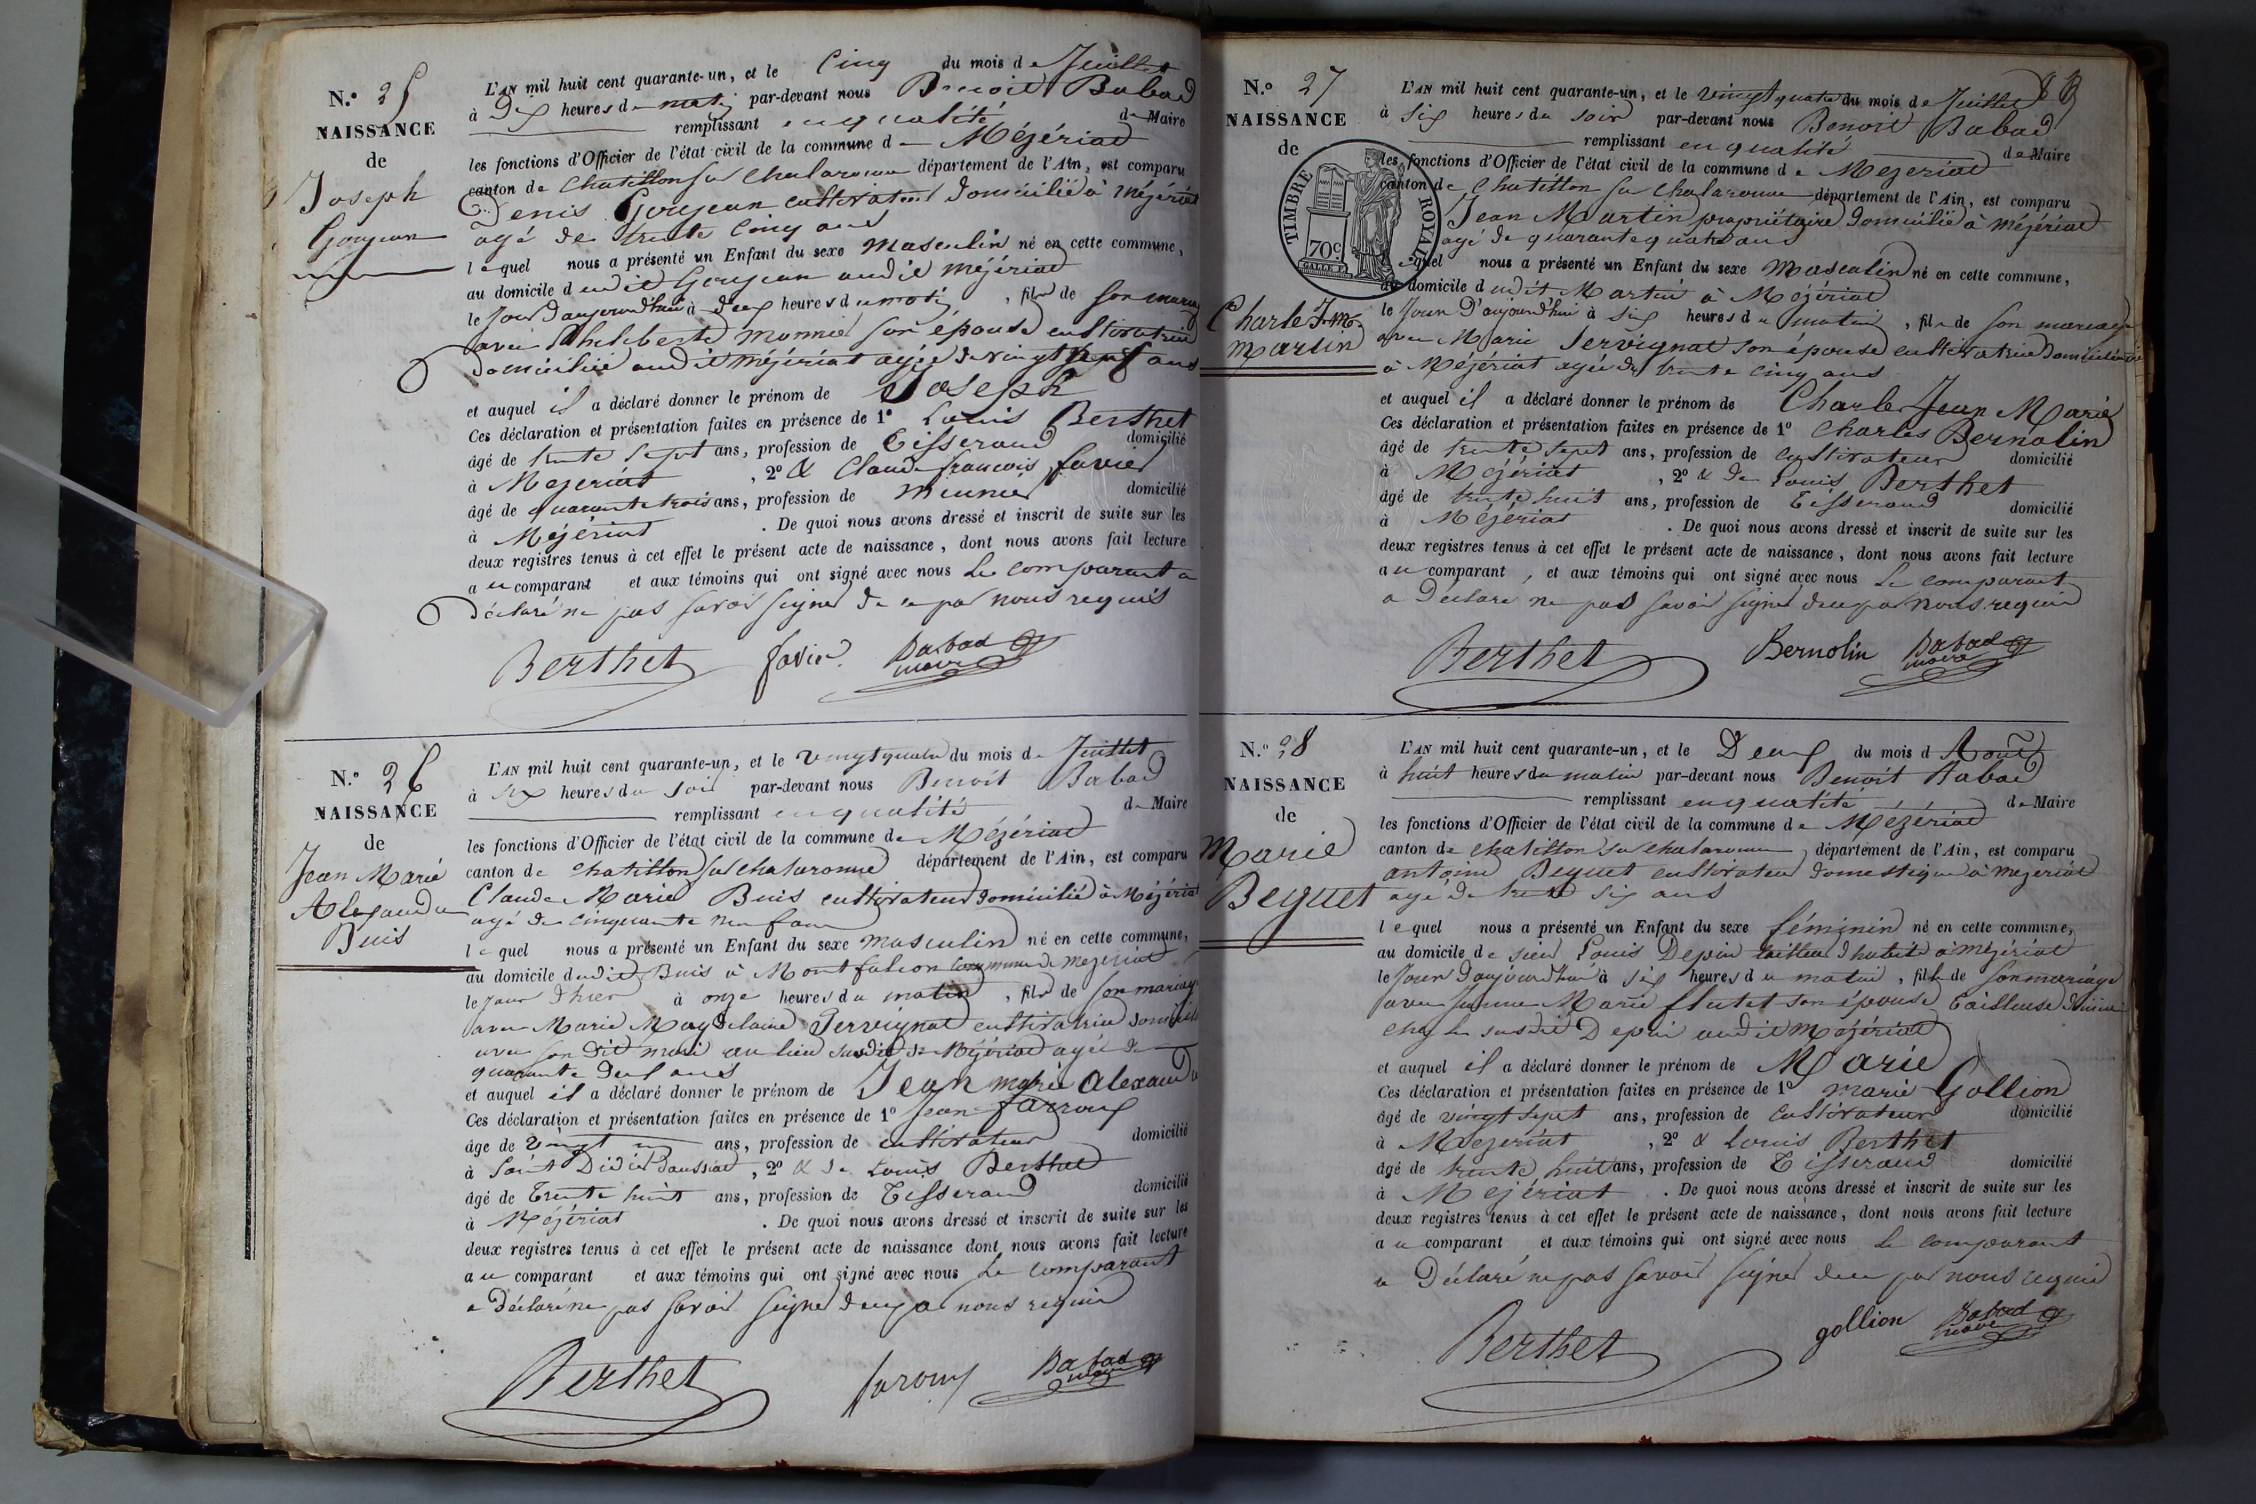 N.º 25
NAISSANCE
de
Joseph
Goujeon
L'AN mil huit cent quarante-un, et le Cinq du mois de Juillet
à Dix heures du matin par-devant nous Benoit Babad
remplissant en qualité de Maire
les fonctions d'Officier de l'état civil de la commune de Mézériat
canton de Chatillon sur Chalaronne département de l'Ain, est comparu
Denis Goujeon cultivateur domicilié à Mézériat
agé de trente cinq ans
lequel nous a présenté un Enfant du sexe masculin né en cette commune,
au domicile dudit Goujeon audit Mézériat
le jour d'aujourd'hui à deux heures du matin, fils de son mariage
avec Philiberte Monnier son épouse cultivatrice
domiciliée audit Mézériat agée de vingt neuf ans
et auquel il a déclaré donner le prénom de Joseph
Ces déclaration et présentation faites en présence de 1º Louis Berthet
âgé de trente sept ans, profession de Tisserand domicilié
à Mézériat, 2º & Claude françois favier
âgé de quarante trois ans, profession de Meunier domicilié
à Mézériat. De quoi nous avons dressé et inscrit de suite sur les
deux registres tenus à cet effet le présent acte de naissance, dont nous avons fait lecture
au comparant et aux témoins qui ont signé avec nous Le comparant a
déclaré ne pas savoir signer de ce par nous requis
Berthet favier Babad maire
N.º 26
NAISSANCE
de
Jean Marie
Alexandre
Buis
L'AN mil huit cent quarante-un, et le vingt quatre du mois de Juillet
à six heures du soir par-devant nous Benoit Babad
remplissant en qualité de Maire
les fonctions d'Officier de l'état civil de la commune de Mézériat
canton de Chatillon sur Chalaronne département de l'Ain, est comparu
Claude Marie Buis cultivateur domicilié à Mézériat
agé de cinquante neuf ans
lequel nous a présenté un Enfant du sexe masculin né en cette commune,
au domicile dudit Buis à Montfalcon commune de Mézériat
le jour d'hier à onze heures du matin, fils de son mariage
avec Marie Magdelaine Servignat cultivatrice domiciliée
avec son dit mari au lieu susdit de Mézériat agée de
quarante deux ans
et auquel il a déclaré donner le prénom de Jean marie alexandre
Ces déclaration et présentation faites en présence de 1º Jean farroux
âge de vingt ans, profession de cultivateur domicilié
à Saint Didier Daussiat, 2º & de Louis Berthet
âgé de Trente huit ans, profession de Tisserand domicilié
à Mézériat. De quoi nous avons dressé et inscrit de suite sur les
deux registres tenus à cet effet le présent acte de naissance dont nous avons fait lecture
au comparant et aux témoins qui ont signé avec nous Le comparant
a déclaré ne pas savoir signer de ce par nous requis
Berthet faroux Babad maire
83
N.º 27
NAISSANCE
de
TIMBRE ROYAL
70c
Charle J. M.
Martin
L'AN mil huit cent quarante-un, et le vingt quatre du mois de Juillet
à six heures du soir par-devant nous Benoit Babad
remplissant en qualité de Maire
les fonctions d'Officier de l'état civil de la commune de Mézériat
canton de Chatillon sur Chalaronne département de l'Ain, est comparu
Jean Martin propriétaire domicilié à Mézériat
agé de quarante quatre ans
lequel nous a présenté un Enfant du sexe Masculin né en cette commune,
au domicile dudit Martin à Mézériat
le Jour D'aujourd'hui à six heures du matin, fils de son mariage
avec Marie Servignat son épouse cultivatrice domiciliée
à Mézériat agée de trente cinq ans
et auquel il a déclaré donner le prénom de Charle Jean Marie
Ces déclaration et présentation faites en présence de 1º Charles Bernolin
âgé de trente sept ans, profession de cultivateur domicilié
à Mézériat, 2º & de Louis Berthet
âgé de trente huit ans, profession de Tisserand domicilié
à Mézériat. De quoi nous avons dressé et inscrit de suite sur les
deux registres tenus à cet effet le présent acte de naissance, dont nous avons fait lecture
au comparant, et aux témoins qui ont signé avec nous Le comparant
a Déclaré ne pas savoir signer de ce par nous requis
Berthet Bernolin Babad maire
N.º 28
NAISSANCE
de
Marie
Beguet
L'AN mil huit cent quarante-un, et le Deux du mois d'Août
à huit heures du matin par-devant nous Benoit Babad
remplissant en qualité de Maire
les fonctions d'Officier de l'état civil de la commune de Mézériat
canton de Chatillon sur Chalaronne département de l'Ain, est comparu
antoine Beguet cultivateur domestique à Mézériat
agé de trente six ans
lequel nous a présenté un Enfant du sexe féminin né en cette commune,
au domicile de sieur Louis Depin tailleur d'habits à Mézériat
le Jour d'aujourd'hui à six heures du matin, fille de son mariage
avec Marie flutet son épouse Tailleuse
chez le susdit Depin audit Mézériat
et auquel il a déclaré donner le prénom de Marie
Ces déclaration et présentation faites en présence de 1º marie Gollion
âgé de vingt sept ans, profession de cultivateur domicilié
à Mézériat, 2º & Louis Berthet
âgé de trente huit ans, profession de Tisserand domicilié
à Mézériat. De quoi nous avons dressé et inscrit de suite sur les
deux registres tenus à cet effet le présent acte de naissance, dont nous avons fait lecture
au comparant et aux témoins qui ont signé avec nous Le comparant
a Déclaré ne pas savoir signer de ce par nous requis
Berthet gollion Babad maire